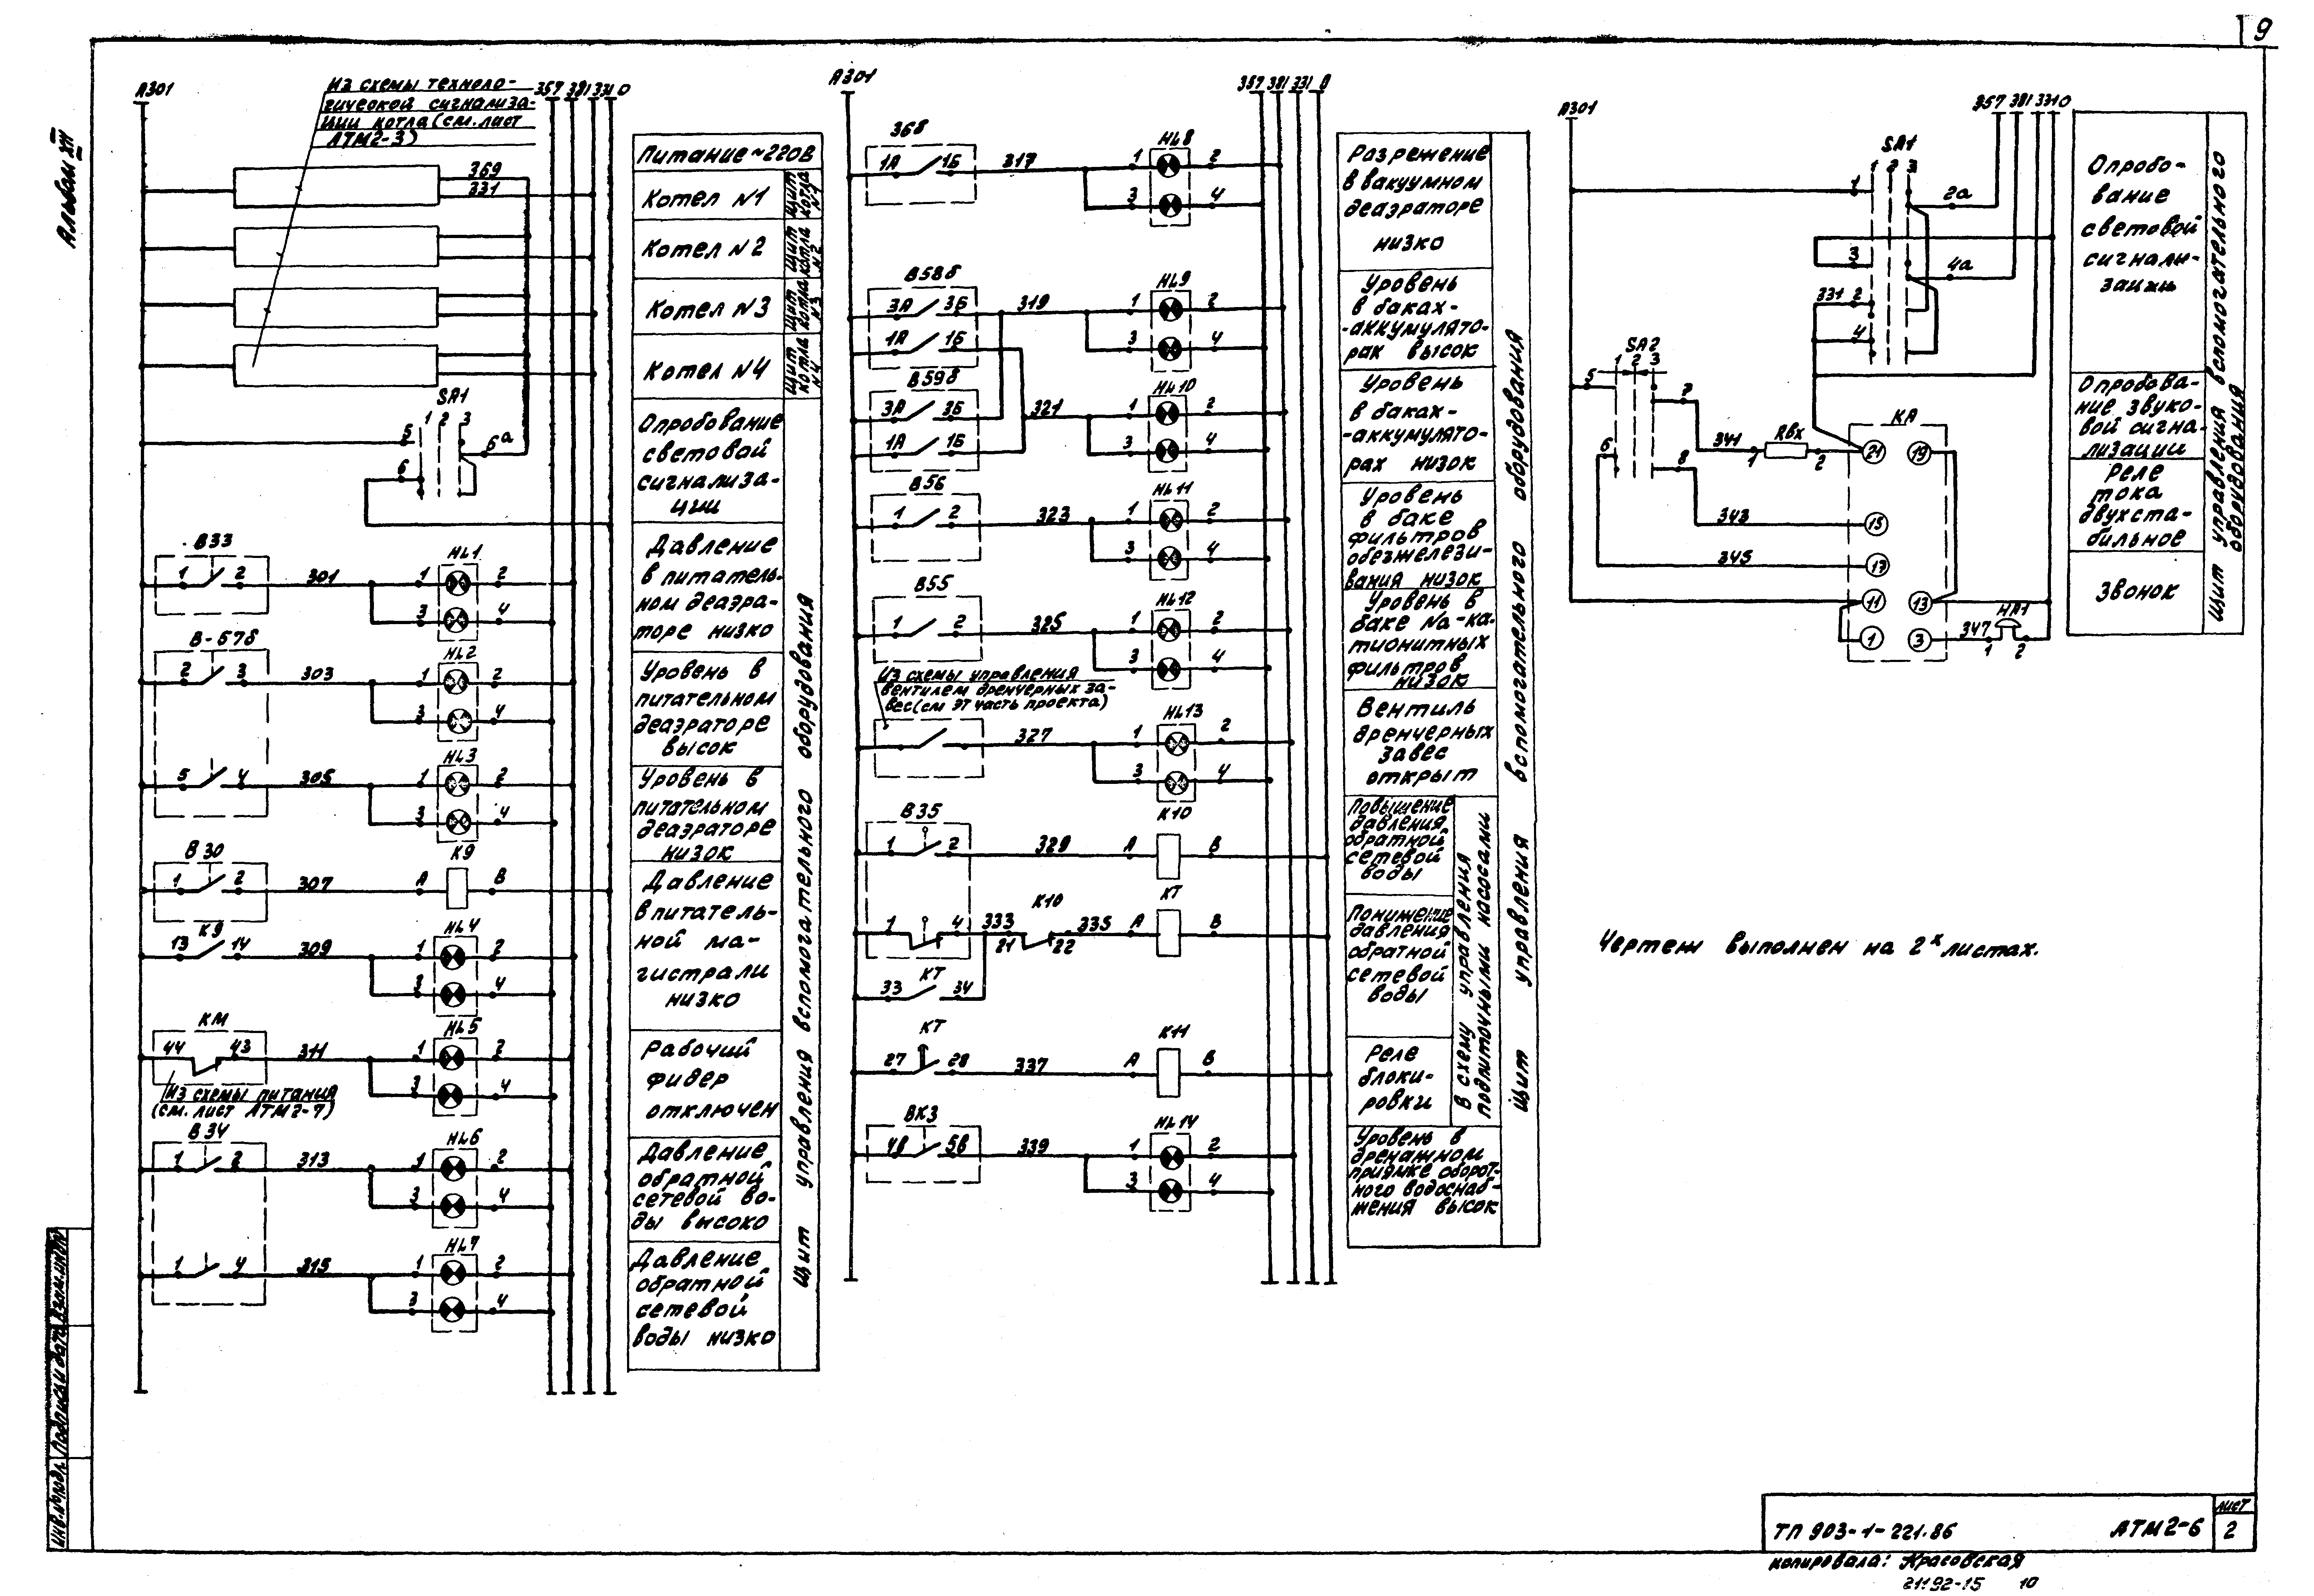 9
Альбом XIII
А301
Из схемы техноло-
гической сигнализа-
ции котла (см. лист
АТМ2-3)
357 381 331 0
369
331
SA1
1 2 3
5
6
6а
В33
1 2
301
HL1
1 2
3 4
В-67б
2 3
303
HL2
1 2
3 4
5 4
305
HL3
1 2
3 4
В30
1 2
307
К9
А В
К9
13 14
309
HL4
1 2
3 4
КМ
44 43
311
HL5
1 2
3 4
Из схемы питания
(см. лист АТМ2-7)
В34
1 2
313
HL6
1 2
3 4
1 4
315
HL7
1 2
3 4
Питание ~220В
Котел №1
Щит котла №1
Котел №2
Щит котла №2
Котел №3
Щит котла №3
Котел №4
Щит котла №4
Опробование
световой
сигнализа-
ции
Давление
в питатель-
ном деаэра-
торе низко
Уровень в
питательном
деаэраторе
высок
Уровень в
питательном
деаэраторе
низок
Давление
в питатель-
ной ма-
гистрали
низко
Рабочий
фидер
отключен
Давление
обратной
сетевой во-
ды высоко
Давление
обратной
сетевой
воды низко
Щит управления вспомогательного оборудования
А301
357 381 331 0
36б
1А 1Б
317
HL8
1 2
3 4
В58б
3А 3Б
319
HL9
1 2
3 4
1А 1Б
В59б
3А 3Б
321
HL10
1 2
3 4
1А 1Б
В56
1 2
323
HL11
1 2
3 4
В55
1 2
325
HL12
1 2
3 4
Из схемы управления
вентилем дренчерных за-
вес (см ЭТ часть проекта)
327
HL13
1 2
3 4
В35
1 2
329
К10
А В
1 4
333
К10
21 22
335
КТ
А В
КТ
33 34
КТ
27 28
337
К11
А В
ВК3
4В 5В
339
HL14
1 2
3 4
Разрежение
в вакуумном
деаэраторе
низко
Уровень
в баках-
-аккумулято-
рах высок
Уровень
в баках-
-аккумулято-
рах низок
Уровень
в баке
фильтров
обезжелези-
вания низок
Уровень в
баке Na-ка-
тионитных
фильтров
низок
Вентиль
дренчерных
завес
открыт
Повышение
давления
обратной
сетевой
воды
Понижение
давления
обратной
сетевой
воды
Реле
блоки-
ровки
В схему управления
подпиточными насосами
Уровень в
дренажном
приямке оборот-
ного водоснаб-
жения высок
Щит управления вспомогательного оборудования
А301
357 381 331 0
SA1
1 2 3
1
2а
3
4а
331 2
4
SA2
1 2 3
5
7
6
8
341
1
Rвх
2
КА
21 19
343
15
345
17
11 13
1 3
347
НА1
1 2
Опробо-
вание
световой
сигнали-
зации
Опробова-
ние звуко-
вой сигна-
лизации
Реле
тока
двухста-
бильное
Звонок
Щит управления вспомогательного
оборудования
Чертеж выполнен на 2х листах.
Инв.№подл. Подпись и дата Взам.инв№
ТП 903-1-221.86
АТМ2-6
Лист
2
Копировала: Красовская
21192-15 10